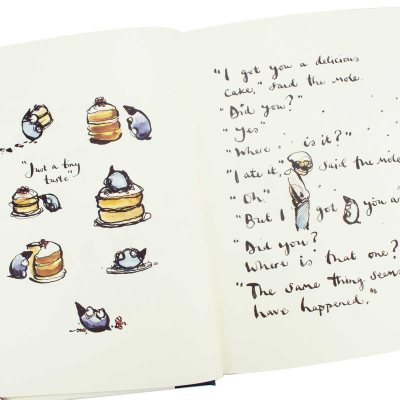 "Just a tiny
taste"
"I got you a delicious
cake," said the mole.
"Did you?"
"Yes"
"Where is it?"
"I ate it," said the mole
"Oh"
"But I got you an
"Did you?
Where is that one?
"The same thing seems
have happened."